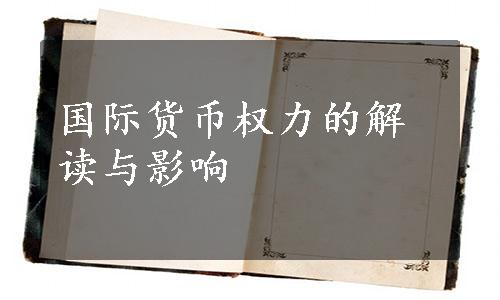 国际货币权力的解
读与影响